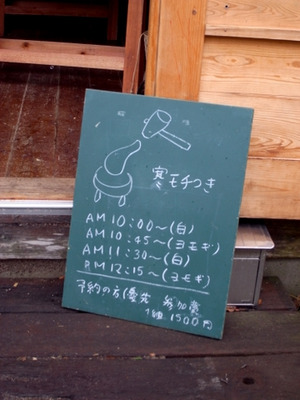 寒モチつき
AM10:00～(白)
AM10:45～(ヨモギ)
AM11:30～(白)
AM12:15～(ヨモギ)
予約の方優先 参加費
1組 1500円